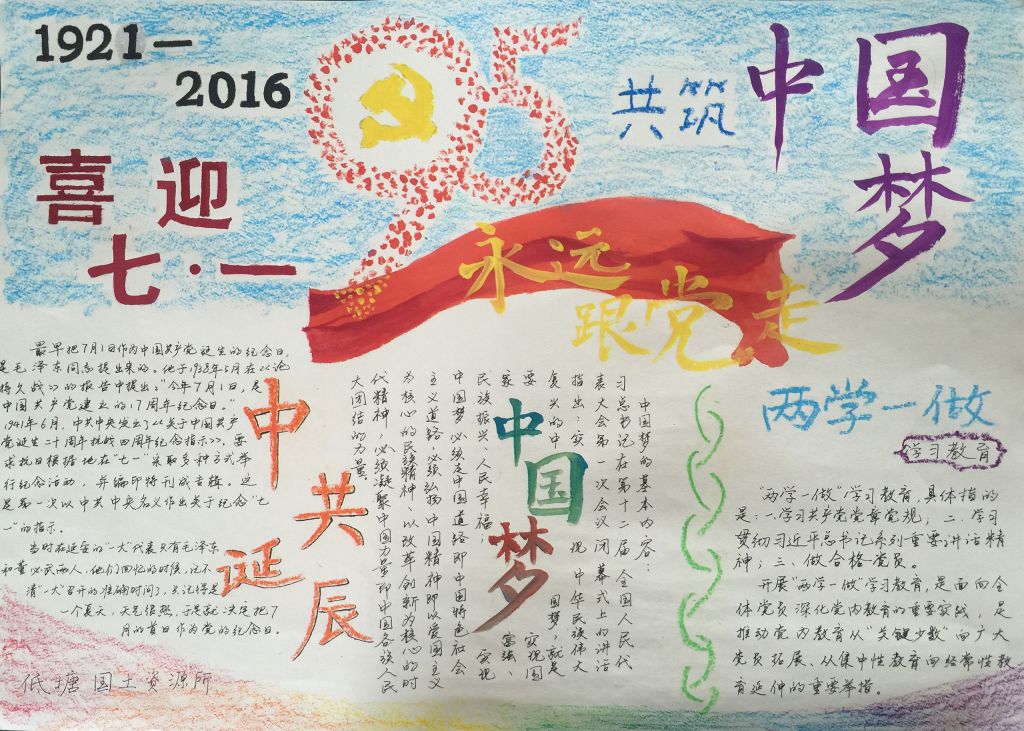 1921—
2016
95
共筑
中国
梦
喜迎
七·一
永远
跟党走
最早把7月1日作为中国共产党诞生的纪念日,
是毛泽东同志提出来的。他于1938年5月在《论
持久战》的报告中提出:"今年7月1日,是
中国共产党建立的17周年纪念日。"
1941年6月,中共中央发出了《关于中国共产
党诞生二十周年抗战四周年纪念指示》,要
求抗日根据地在"七一"采取多种方式举
行纪念活动,并编印特刊或专辑。这
是第一次以中共中央名义作出关于纪念"七
一"的指示。
当时在延安的"一大"代表只有毛泽东
和董必武两人,他们回忆的时候,记不
清"一大"召开的准确时间了,只记得是
一个夏天,天气很热,于是就决定把7
月的首日作为党的纪念日。
中共
诞辰
中国梦
中国梦的基本内容:
习总书记在第十二届全国人民代
表大会第一次会议闭幕式上的讲话
指出:实现中华民族伟大
复兴的中国梦,就是
要实现国
家富强、
民族振兴、人民幸福;实现
中国梦必须走中国道路即中国特色社会
主义道路,必须弘扬中国精神即以爱国主义
为核心的民族精神、以改革创新为核心的时
代精神,必须凝聚中国力量即中国各族人民
大团结的力量。
两学一做
学习教育
"两学一做"学习教育,具体指的
是:一、学习共产党党章党规;二、学习
贯彻习近平总书记系列重要讲话精
神;三、做合格党员。
开展"两学一做"学习教育,是面向全
体党员深化党内教育的重要实践,是
推动党内教育从"关键少数"向广大
党员拓展、从集中性教育向经常性教
育延伸的重要举措。
低塘国土资源所